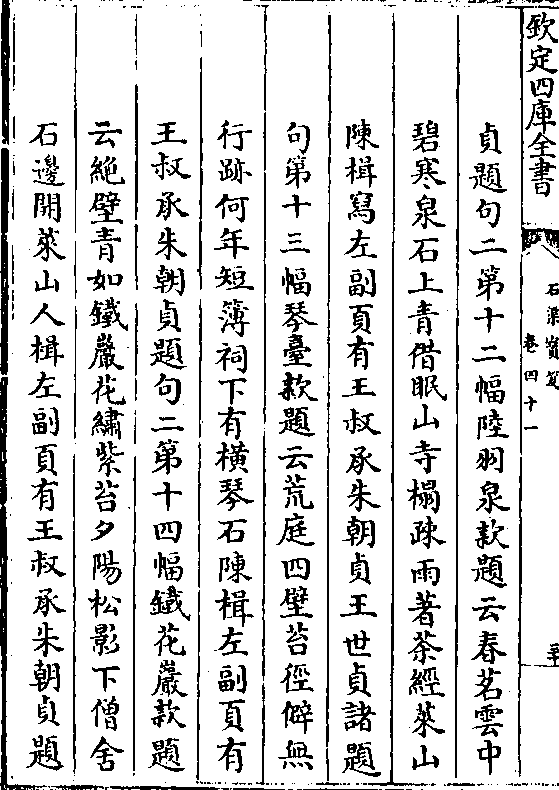 欽定四庫全書
石渠寶笈
卷四十一
貞題句二第十二幅陸羽泉款題云春茗雲中
碧寒泉石上青借眠山寺榻疎雨著茶經萊山
陳楫寫左副頁有王叔承朱朝貞王世貞諸題
句第十三幅琴臺款題云荒庭四壁苔徑僻無
行跡何年短簿祠下有橫琴石陳楫左副頁有
王叔承朱朝貞題句二第十四幅鐵花巖款題
云絶壁青如鐵巖花繡紫苔夕陽松影下僧舍
石邊開萊山人楫左副頁有王叔承朱朝貞題